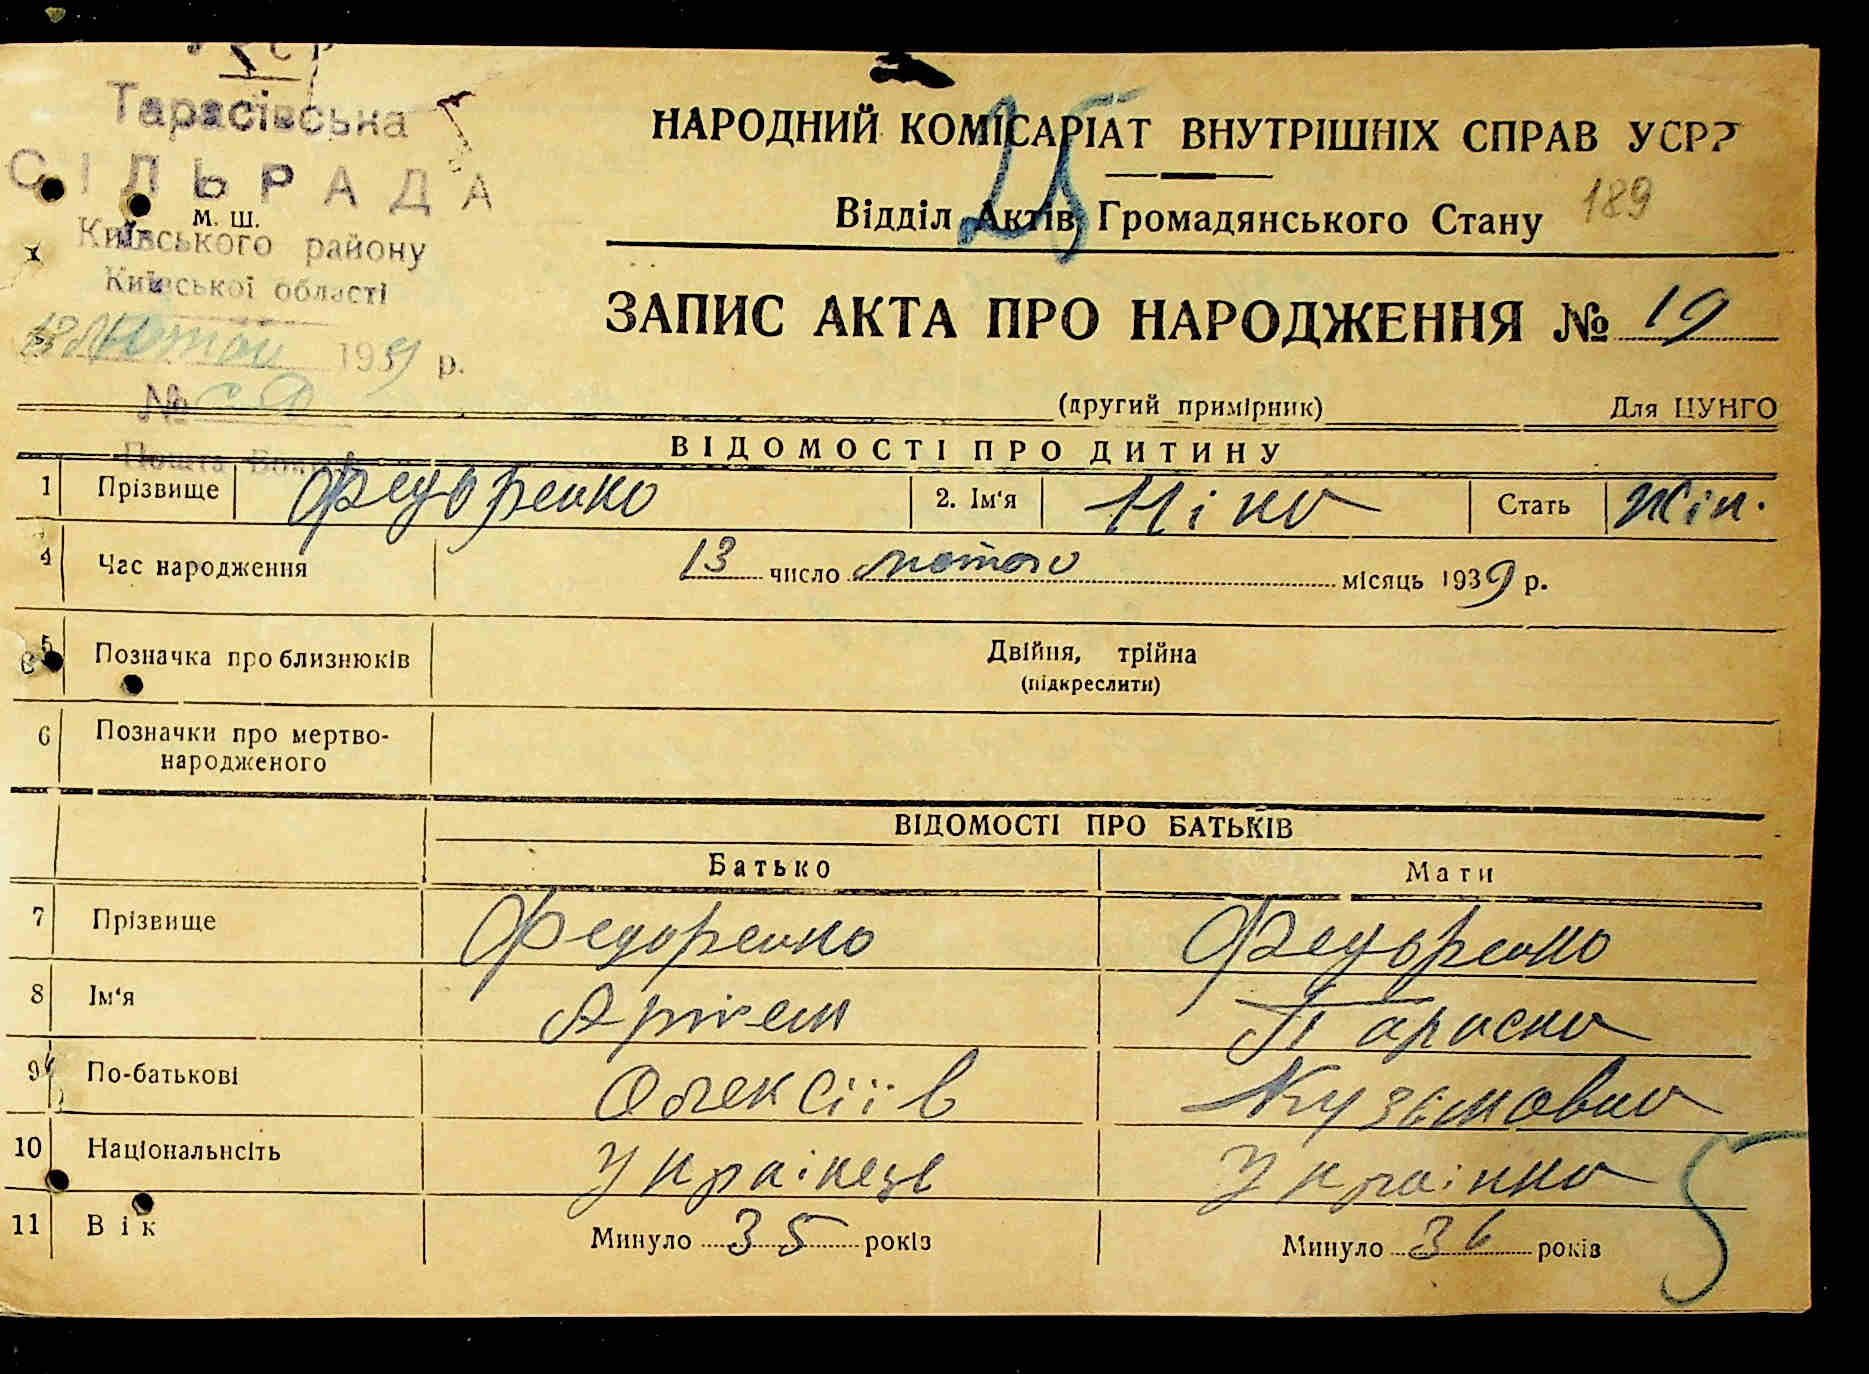 УСРР
Тарасівська
СІЛЬРАДА
м. ш.
Київського району
Київської області
лютого 1939 р.
№
Пошта
НАРОДНИЙ КОМІСАРІАТ ВНУТРІШНІХ СПРАВ УСРР
25
Відділ Актів Громадянського Стану
189
ЗАПИС АКТА ПРО НАРОДЖЕННЯ № 19
(другий примірник) Для ЦУНГО
ВІДОМОСТІ ПРО ДИТИНУ
1 Прізвище Федоренко 2. Ім'я Ніна Стать Жін.
4 Час народження 13 число лютого місяць 1939 р.
5 Позначка про близнюків Двійня, трійня
(підкреслити)
6 Позначки про мертво-
народженого
ВІДОМОСТІ ПРО БАТЬКІВ
Батько Мати
7 Прізвище Федоренко Федоренко
8 Ім'я Артем Параска
9 По-батькові Олексіїв Кузьмовна
10 Національнсіть Українець Українка
5
11 Вік Минуло 35 років Минуло 36 років